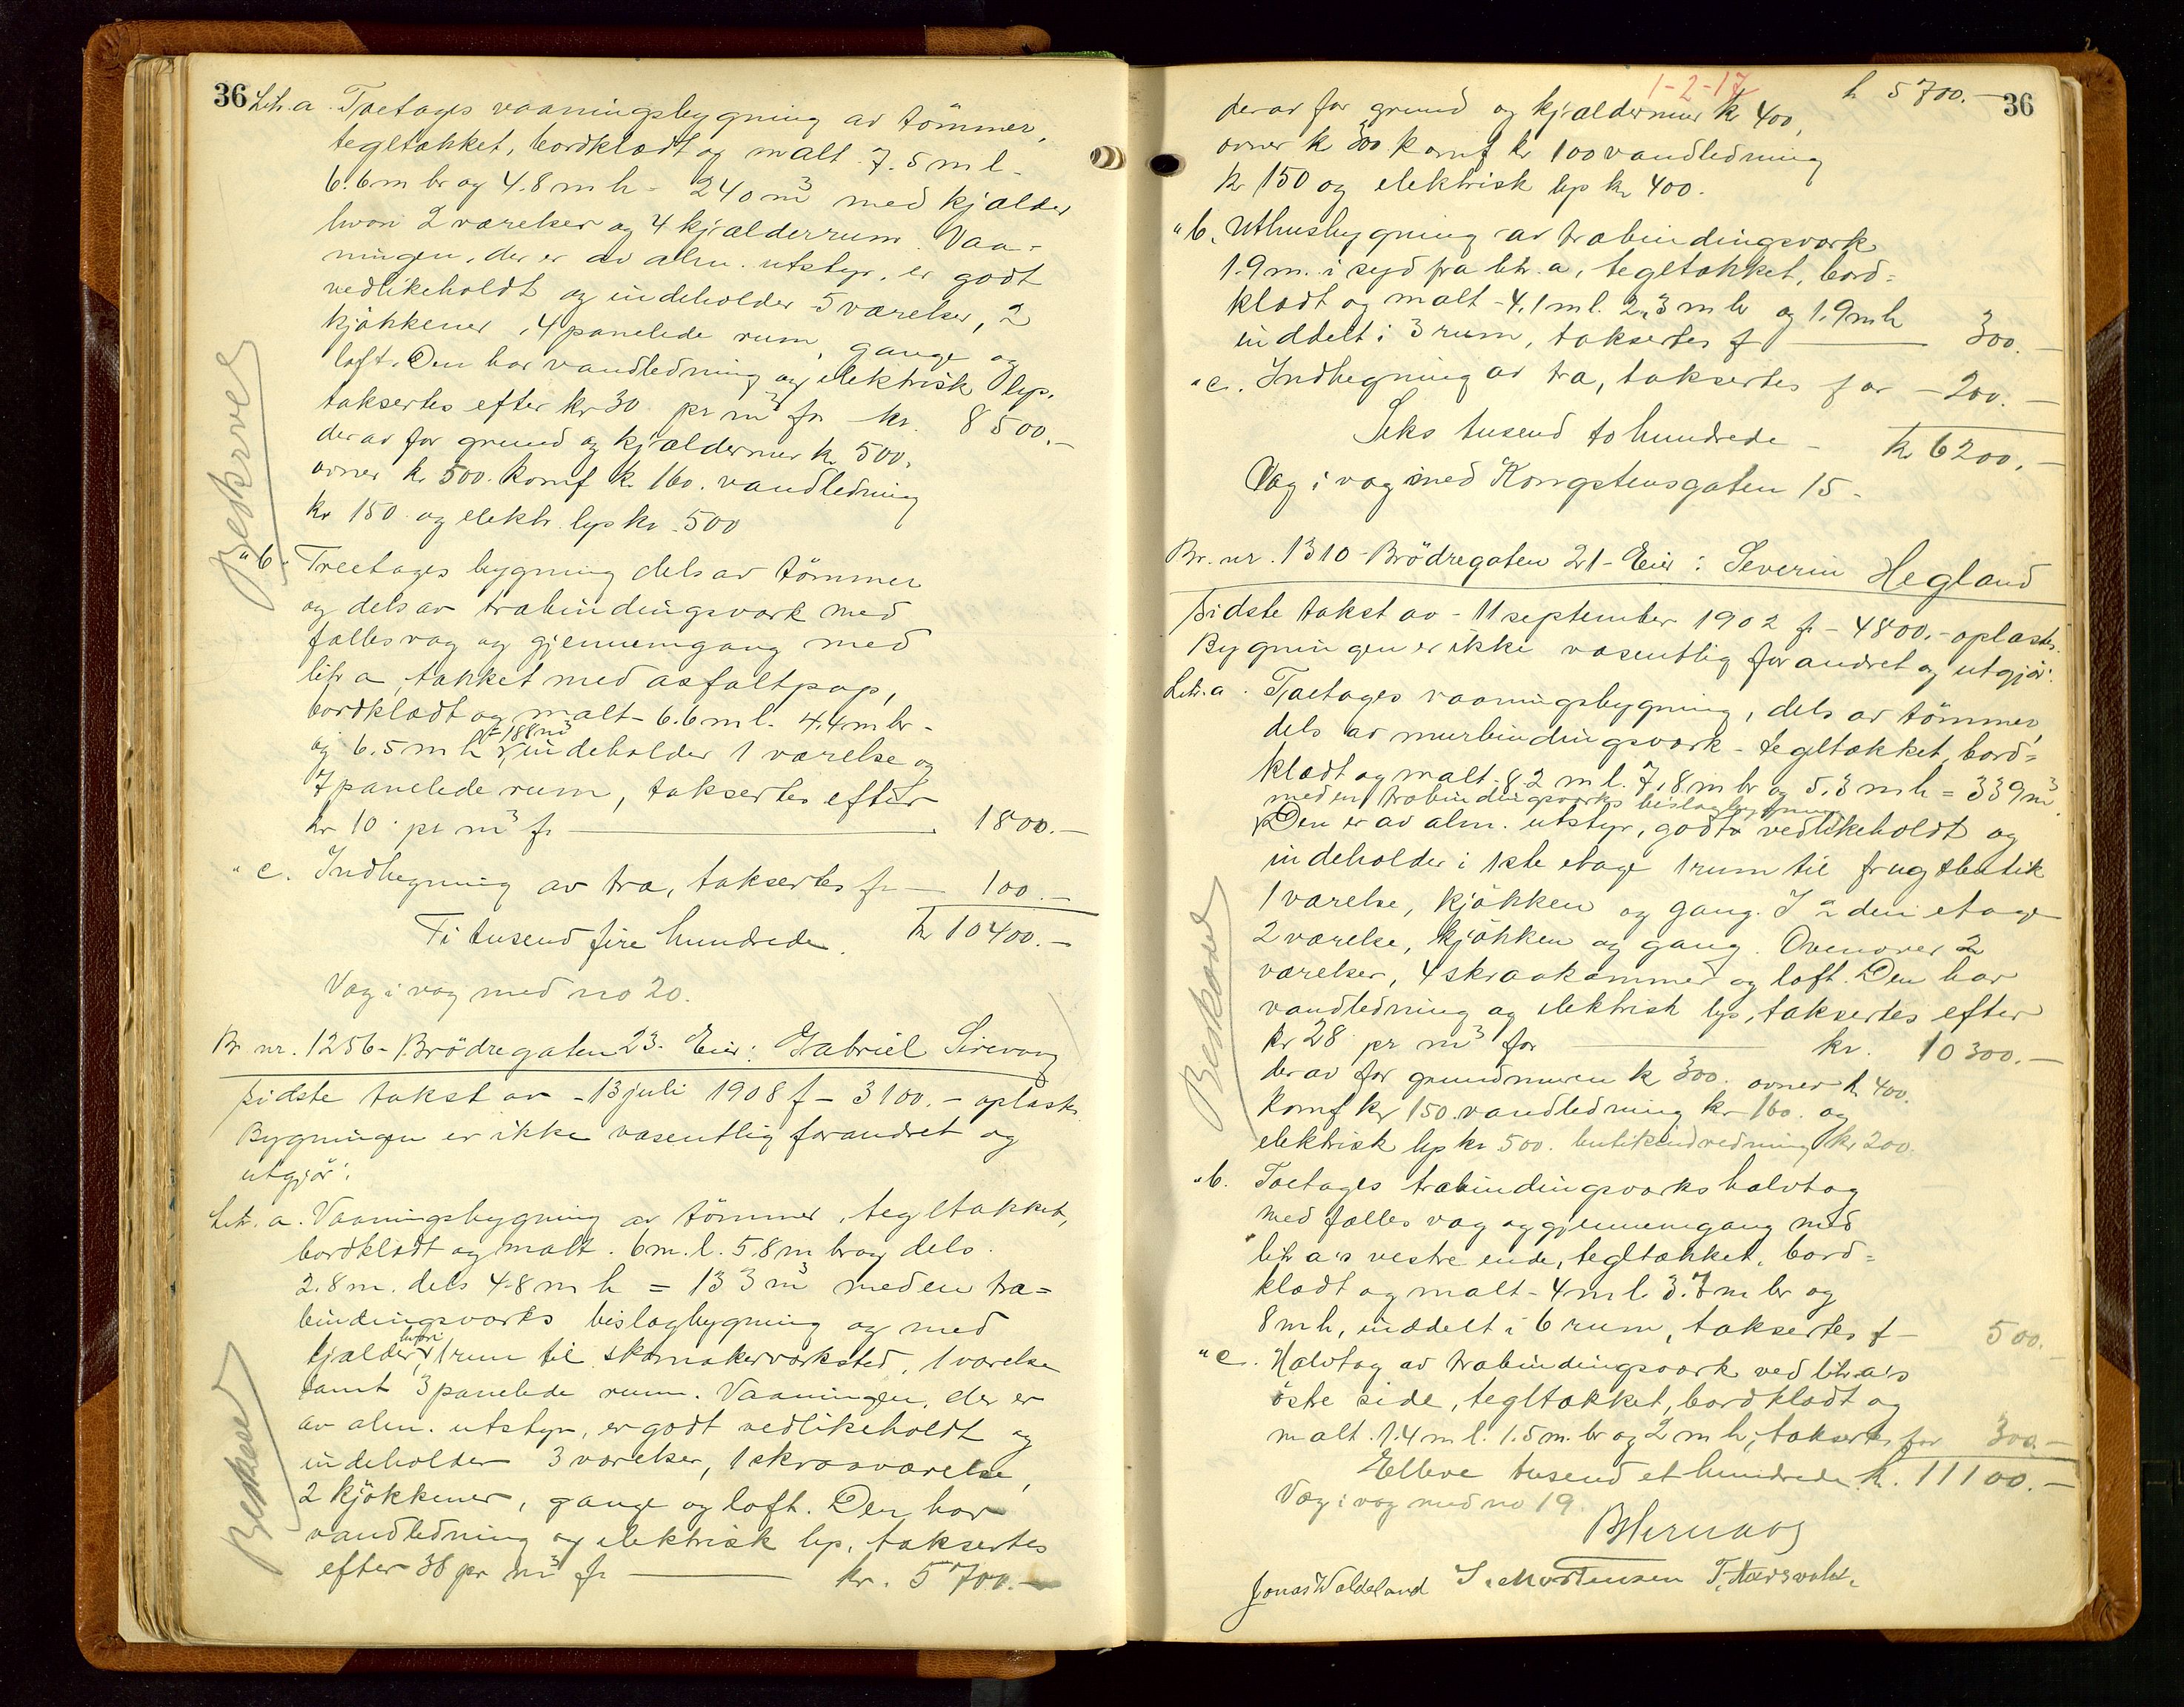 36
Litr. a. Toetages vaaningsbygning av tömmer,
tegltækket, bordklædt og malt. 7.5 m l.
6.6 m br og 4.8 m h - 240 m³ med kjælder
hvori 2 værelser og 4 kjælderrum. Vaa-
ningen, der er av alm. utstyr, er godt
vedlikeholdt og indeholder 5 værelser, 2
kjökkener, 4 panelede rum, gange og
loft. Den har vandledning og elektrisk lys,
taksertes efter kr 30 pr m³ fr kr. 8500.-
derav for grund og kjældermur kr 500,
ovner kr 500. komf kr 160. vandledning
kr 150 og elektr. lys kr. 500
Beskrevet
" b. Treetages bygning dels av tömmer
og dels av træbindingsværk med
fælles væg og gjennemgang med
litr a, tækket med asfaltpap,
bordklædt og malt - 6.6 m l. 4.4 m br -
og 6.5 m h = 188 m³, indeholder 1 værelse og
7 panelede rum, taksertes efter
kr 10 pr m³ fr 1800.-
" c. Indhegning av træ, taksertes fr - 100.-
Ti tusend fire hundrede kr 10400.-
Væg i væg med no 20.
Br nr. 1256 - Brödregaten 23. Eier: Gabriel Sirevaag
Sidste takst av - 13 juli 1908 f - 3100.- oplæstes.
Bygningen er ikke væsentlig forandret og
utgjör:
Litr. a. Vaaningsbygning av tömmer, tegltækket,
bordklædt og malt. 6 m. l. 5.8 m br og dels
2.8 m. dels 4.8 m h = 133 m³ med en træ=
bindingsværks bislagbygning og med
kjælder hvori 1 rum til skomakerværksted, 1 værelse
samt 3 panelede rum. Vaaningen, der er
av alm. utstyr, er godt vedlikeholdt og
indeholder 3 værelser, 1 skraaværelse,
2 kjökkener, gange og loft. Den har
vandledning og elektrisk lys, taksertes
efter 38 pr m³ fr kr. 5700.-
Beskrevet
36
1-2-17
kr 5700.-
derav for grund og kjældermur kr 400,
ovner kr 300 komf kr 100 vandledning
kr 150 og elektrisk lys kr 400.
" b. Uthusbygning av træbindingsværk
1.9 m. i syd fra litr. a, tegltækket, bord=
klædt og malt - 4.1 m l. 2.3 m br og 1.9 m h
inddelt i 3 rum, taksertes f 300.-
" c. Indhegning av træ, taksertes for - 200.-
Seks tusend to hundrede - kr 6200.-
Væg i væg med Kongstensgaten 15.
Br. nr. 1310 - Brödregaten 21 - Eier: Severin Hegland
Sidste takst av - 11 september 1902 f - 4800.- oplæstes.
Bygningen er ikke væsentlig forandret og utgjör:
Litr. a. Toetages vaaningsbygning, dels av tömmer,
dels av murbindingsværk - tegltækket, bord=
klædt og malt. 8.2 m l. 7.8 m br og 5.3 m h = 339 m³
med en træbindingsværks bislagbygning
Den er av alm. utstyr, godt vedlikeholdt og
indeholder i 1ste etage 1 rum til frugtbutik
1 værelse, kjökken og gang. I 2den etage
2 værelse, kjökken og gang. Ovenover 2
værelser, 4 skraakammer og loft. Den har
vandledning og elektrisk lys, taksertes efter
kr 28 pr m³ for kr. 10300.-
derav for grundmuren kr 300. ovner kr 400.
komf kr 150. vandledning kr 160. og
elektrisk lys kr 500. butikindredning kr 200.
Beskrevet
" b. Toetages træbindingsværks halvtag
med fælles væg og gjennemgang med
litr a's vestre ende, tegltækket, bord=
klædt og malt - 4 m l. 3.7 m br og
8 m h, inddelt i 6 rum, taksertes f - 500.-
" c. Halvtag av træbindingsværk ved litr. a's
östre side, tegltækket, bordklædt og
malt. 1.4 m l. 1.5 m. br og 2 m h, taksertes for 300.-
Elleve tusend et hundrede kr. 11100.-
Væg i væg med no 19.
Jonas Waldeland S. Mortensen